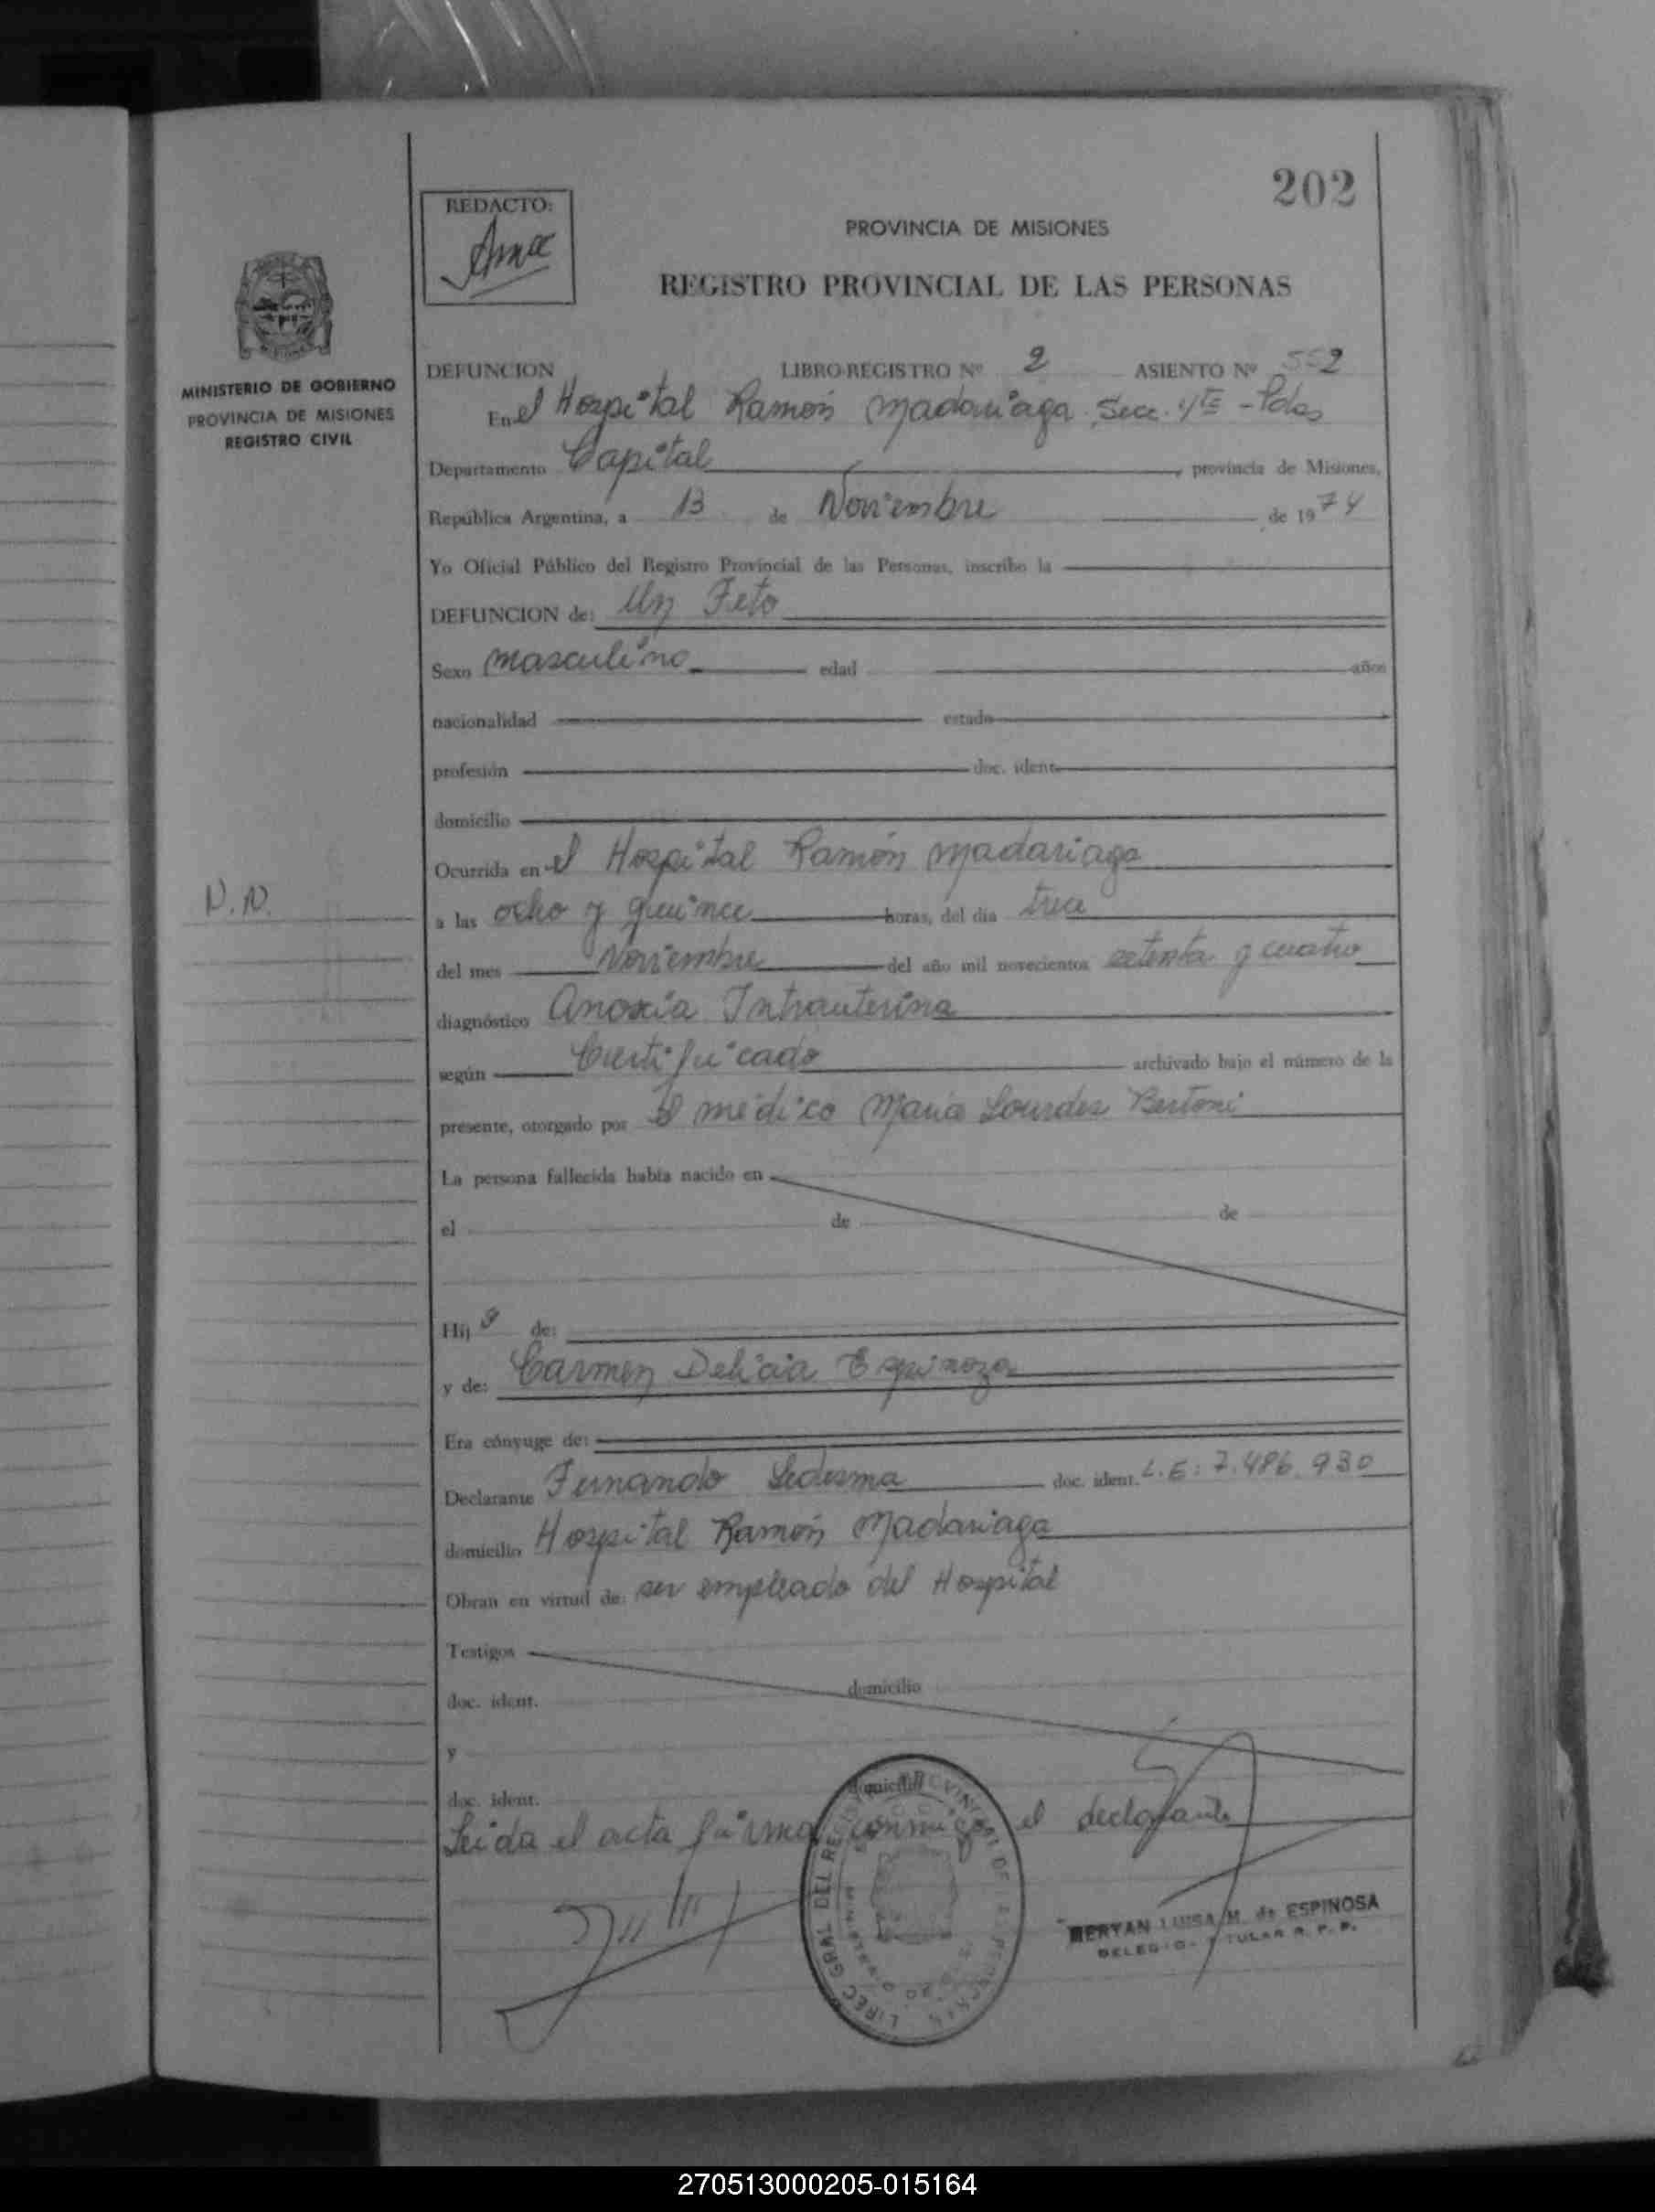 202
REDACTO:
PROVINCIA DE MISIONES
REGISTRO PROVINCIAL DE LAS PERSONAS
MINISTERIO DE GOBIERNO
PROVINCIA DE MISIONES
REGISTRO CIVIL
DEFUNCION LIBRO-REGISTRO Nº 2 ASIENTO Nº 552
En el Hospital Ramón Madariaga Secc. 4ta - Pdas
Departamento Capital, provincia de Misiones,
República Argentina, a 13 de Noviembre de 1974
Yo Oficial Público del Registro Provincial de las Personas, inscribo la
DEFUNCION de: Un Feto
Sexo masculino edad años
nacionalidad estado
profesión doc. ident.
domicilio
Ocurrida en el Hospital Ramón Madariaga
N.N.
a las ocho y quince horas, del día trece
del mes Noviembre del año mil novecientos setenta y cuatro
diagnóstico Anoxia Intrauterina
según Certificado archivado bajo el número de la
presente, otorgado por El médico María Lourdes Bertoni
La persona fallecida había nacido en
el de de
Hijo de:
y de: Carmen Delicia Espinoza
Era cónyuge de:
Declarante Fernando Ledesma doc. ident. L.E: 7.486.930
domicilio Hospital Ramón Madariaga
Obran en virtud de: ser empleado del Hospital
Testigos
doc. ident. domicilio
y
doc. ident. domicilio
Leida el acta firma conmigo el declarante
LUISA M. de ESPINOSA
270513000205-015164